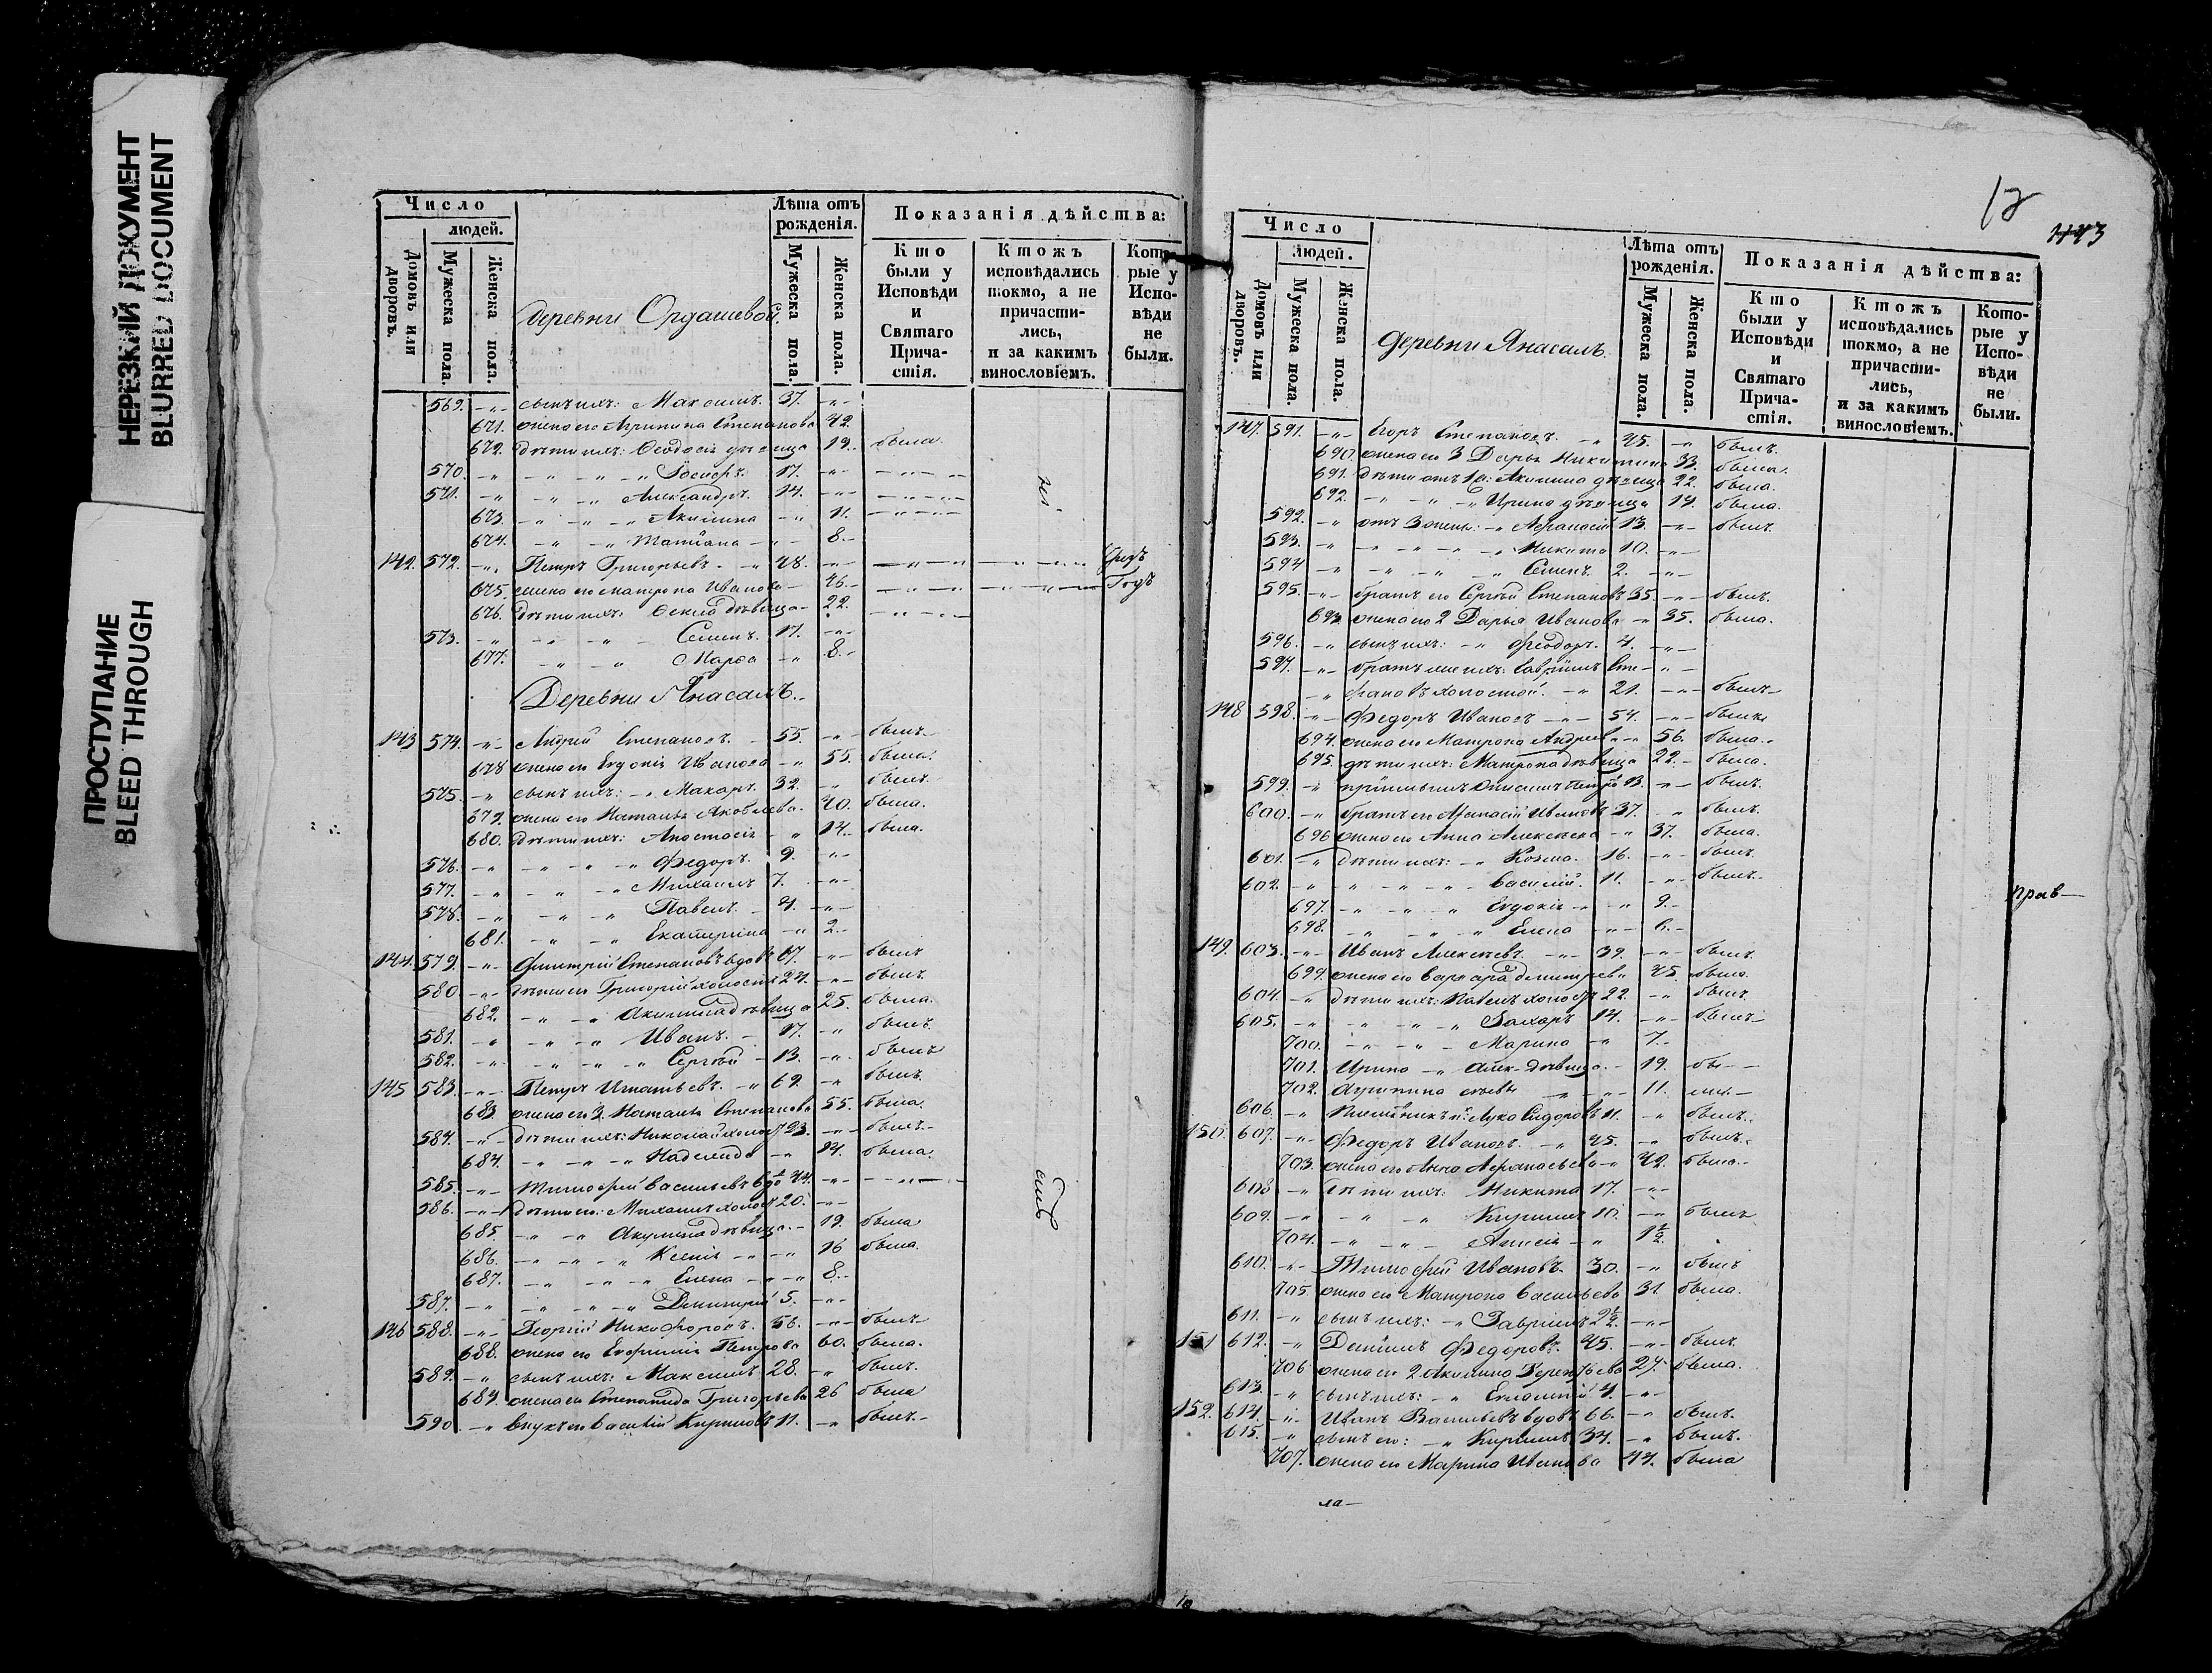 НЕРЕЗКИЙ ДОКУМЕНТ
BLURRED DOCUMENT
ПРОСТУПАНИЕ
BLEED THROUGH
Число
людей.
Домовъ или дворовъ.
Мужеска пола.
Женска пола.
деревни Ордашевой.
Лѣта отъ рожденія.
Мужеска пола.
Женска пола.
Показанія дѣйства:
Кто были у Исповѣди и Святаго Прича-стія.
Ктожъ исповѣдались токмо, а не причасти-лись, и за какимъ винословіемъ.
Кото-рые у Испо-вѣди не были.
569. -"- сынъ ихъ: Максимъ. 37. -"-
671. жена его Агрипина Степанова 42.
672. дѣти ихъ: Ѳеодосія дѣвица 19. была.
570. -" -" -" -" Іосифъ. 17. -"-
571. -" -" -" Александръ. 14. -"-
673. -" -" -" Акилина -" 11.
674. -" -" Татіана -" 8.-
142. 572. -". Петръ Григорьевъ. -" 48. -"-
675. жена его Матрона Иванова 46.- Годъ
676. дѣти ихъ: Ѳекла дѣвица- 22.
573. -" -" -" Семенъ. 17. -"-
677. -" -" Марѳа -" 8.-
Деревни Янасалъ.
143 574. -"- Андрей Степановъ. - 55. -"- былъ.
678 жена его Евдокія Иванова -" 55. была.
575. -" сынъ ихъ: -" Макаръ. 32. -" былъ.
679. жена его Наталья Яковлева. 40. была.
680. дѣти ихъ: Анастасія -" 14. была.
576. -" -" -" -" Федоръ. 9. -"-
577. -" -" -" Михаилъ 7. -"-
578. -" -" -" Павелъ. - 4. -"-
681. -" -" Екатерина -" 2.-
144. 579. -"- Дмитрій Степановъ вдовъ 67. -"- былъ
580 -"- дѣти его Григорій холостъ 27. -"- былъ.
682. -" -" Акилина дѣвица 25. была.
581. -" -" -" Иванъ. - 17. -" былъ.
582. -" -" -" -" Сергѣй - 13. -" былъ
145 583. -"- Петръ Игнатьевъ. -" 69. -" былъ.
683 жена его 2. Наталья Степанова 55. была.
584. -"- дѣти ихъ: Николай холост 23. -"- былъ.
684. -" -" -" Надежда -" 14. была.
585. -"- Тимофей Васильевъ вдо 44. -"-
586. -"- дѣти его: Михаилъ холост 20. -"-
685. -" -" Акулина дѣвица. - 19. была
686. -" -" -" Ксенія -" -" 16 была.
687. -" -" -" Елена -" -" 8.-
587. -" -" -" -" Дмитрій 5. -"-
146 588. -"- Георгій Никифоровъ. 56. -"- былъ
688. жена его Евфимія Петрова 60. была.
589. -" сынъ ихъ: Максимъ 28. -" былъ.
689. жена его Степанида Григорьева 26 была
590 -" внукъ его Василій Кириловъ 11. -" былъ.-
12
Число
людей.
Домовъ или дворовъ.
Мужеска пола.
Женска пола.
деревни Янасалъ.
Лѣта отъ рожденія.
Мужеска пола.
Женска пола.
Показанія дѣйства:
Кто были у Исповѣди и Святаго Прича-стія.
Ктожъ исповѣдались токмо, а не причасти-лись, и за какимъ винословіемъ.
Кото-рые у Испо-вѣди не были.
147. 591. -"- Егоръ Степановъ. -" 45. -" былъ.
690. жена его 3 Дарья Никитина 33. была.
691. дѣти отъ 1й: Акилина дѣвица 22. была.
692. -" -" -" Ирина дѣвица 14. была.
592. -" отъ 3 жены: -" Афанасій 13. -"- былъ.
593. -" -" -" -" Никита 10. -"-
594 -" -" -" -" Семенъ. 2. -"-
595. -"- братъ его Сергѣй Степановъ 35. -"- былъ.
693 жена его 2 Дарья Иванова -" 35. была.
596. -" сынъ ихъ: -" Феодоръ. 4. -"-
597. -"- братъ же ихъ: Гавріилъ Сте- -"-
-" фановъ холостой. -" 21. -"- былъ-
148 598. -"- Федоръ Ивановъ -"- 54. -"- былъ
694. жена его Матрона Андреев -" 56. была.
695. дѣти ихъ: Матрона дѣвица 22.- была.
599. -" 13. -"- былъ.
600. -" братъ его Афанасій Ивановъ 37. -" былъ.
696 жена его Анна Алексѣева -" 37. была.
601. -" дѣти ихъ: -" Козма. 16. -"- былъ.
602. -" -" -" -" Василій. 11. -"- былъ.-
697. -" -" -" Евдокія -" 9.-
698. -" -" -" Елена -"- 6.-
прав-
149. 603. -"- Иванъ Алексѣевъ. -"- 39. -"- былъ.
699. жена его Варвара Дмитрев 45. была.
604. -" дѣти ихъ: Павелъ холост 22. -" былъ.
605. -" -" -" -" Захаръ 14. -" былъ.-
700. -" -" -" Марина -" 7.-
701. Ирина -" дѣвица.- 19.
702. Агрипина -"- 11.
606. -" Лука Сидоровъ 11. -" былъ.
150. 607. -"- Федоръ Ивановъ. -" 45. -" былъ.
703. жена его Анна Афанасьева -" 42. была.-
608 -" дѣти ихъ: Никита 17. -"-
609. -" -" -" Кирилъ 10. -"- былъ
704. -" -" -" Анисія -" 1½.
610. -"- Тимофей Ивановъ. 30. -" былъ
705 жена его Матрона Васильева 31. была.
611. -" сынъ ихъ: -" Гавріилъ 2½. -"-
151 612. -" Даніилъ Федоровъ. 45. -"- былъ.
706 жена его 2 Акилина Терентьева 27. была.
613. -" сынъ ихъ: -" Евлампій 4. -"-
152. 614. -"- Иванъ Васильевъ вдовъ 66. -" былъ.
615. -" сынъ его: -" Кирилъ 34. -" былъ.
707. жена его Марина Иванова 44. была
ла-